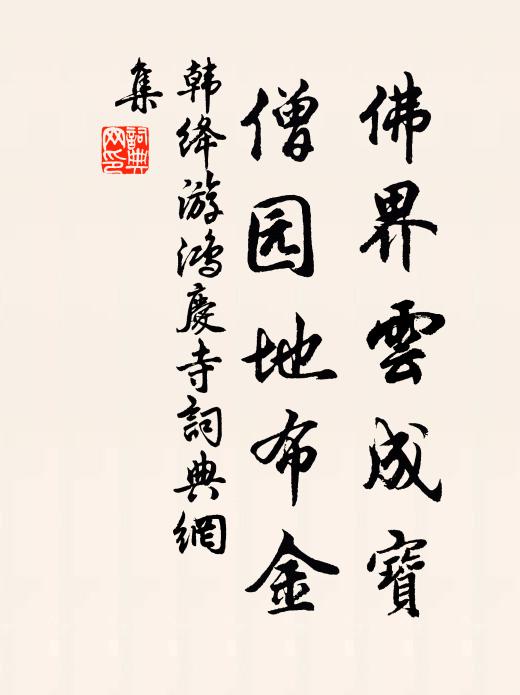 佛界雲成寶
僧园地布金
韩绛游鸿慶寺詞典網
集
詞典
网印